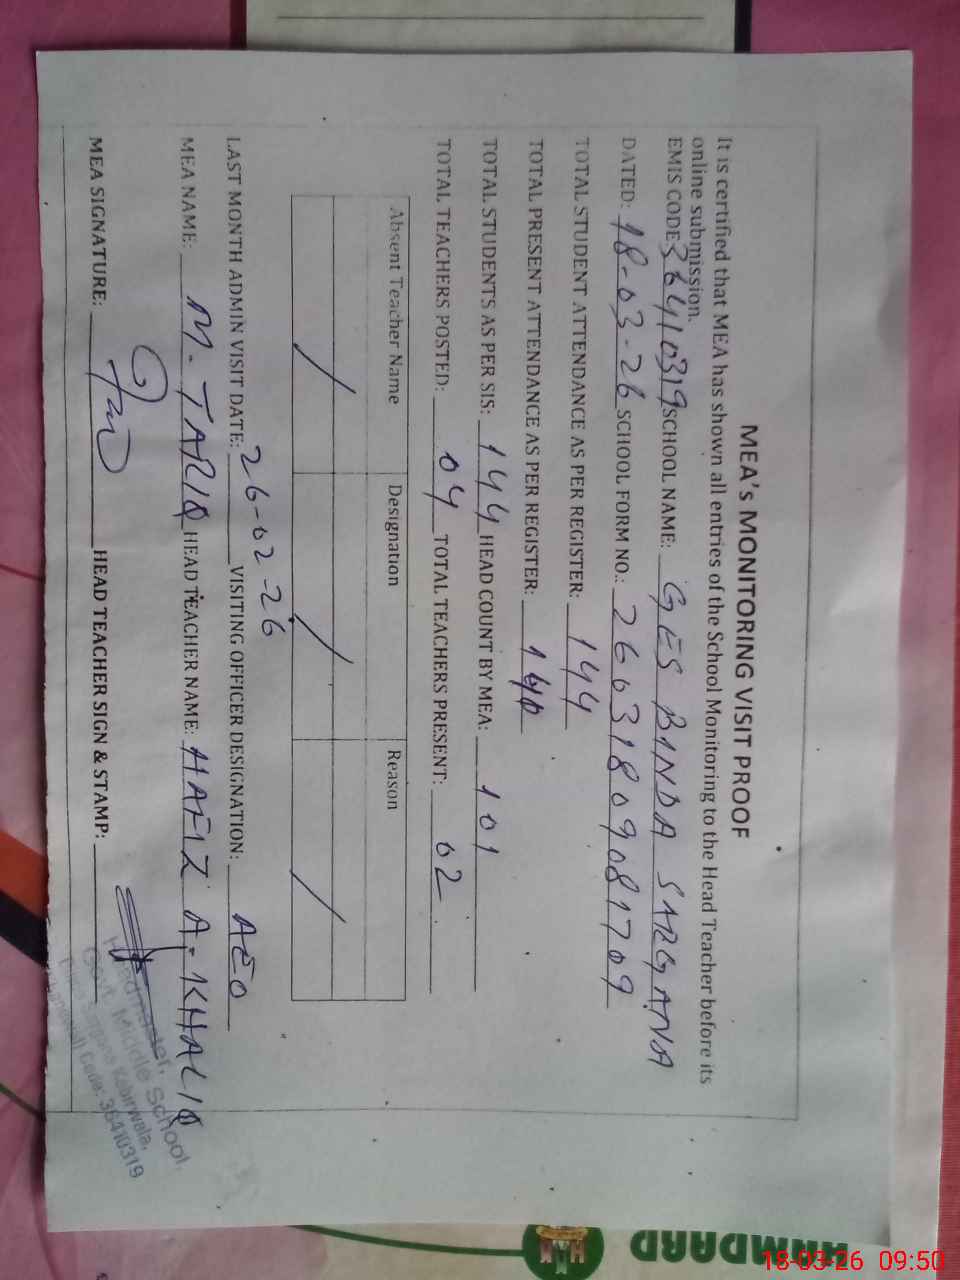 MEA's MONITORING VISIT PROOF
It is certified that MEA has shown all entries of the School Monitoring to the Head Teacher before its
online submission.
EMIS CODE 36410319 SCHOOL NAME: GES BINDA SARGANA
DATED: 18-03-26 SCHOOL FORM NO.: 26031809081709
TOTAL STUDENT ATTENDANCE AS PER REGISTER: 144
TOTAL PRESENT ATTENDANCE AS PER REGISTER: 140
TOTAL STUDENTS AS PER SIS: 144 HEAD COUNT BY MEA: 101
TOTAL TEACHERS POSTED: 04 TOTAL TEACHERS PRESENT: 02
Absent Teacher Name Designation Reason
/ / /
LAST MONTH ADMIN VISIT DATE: 26-02-26 VISITING OFFICER DESIGNATION: AEO
MEA NAME: M. TARIQ HEAD TEACHER NAME: HAFIZ A. KHALIQ
MEA SIGNATURE: HEAD TEACHER SIGN & STAMP:
Headmaster,
Govt. Middle School,
Sargana Kabirwala,
(Khanewal) Code: 36410319
HAMDARD
18-03-26 09:50